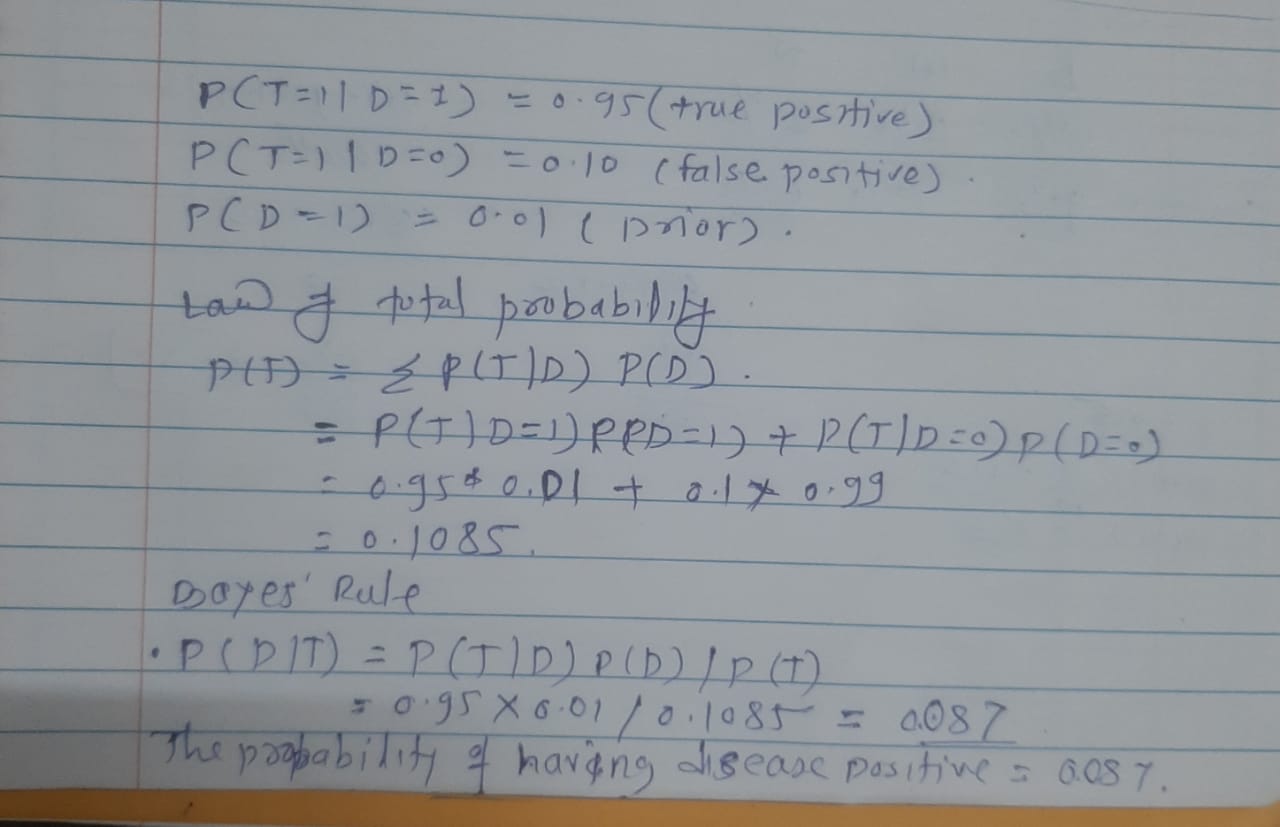 P(T=1|D=1) = 0.95 (true positive)
P(T=1|D=0) = 0.10 (false positive).
P(D=1) = 0.01 (prior).
Law of total probability
P(T) = Σ P(T|D) P(D).
= P(T|D=1) P(D=1) + P(T|D=0) P(D=0)
= 0.95 * 0.01 + 0.1 * 0.99
= 0.1085.
Bayes' Rule
• P(D|T) = P(T|D) P(D) / P(T)
= 0.95 X 0.01 / 0.1085 = 0.087
The probability of having disease positive = 0.087.